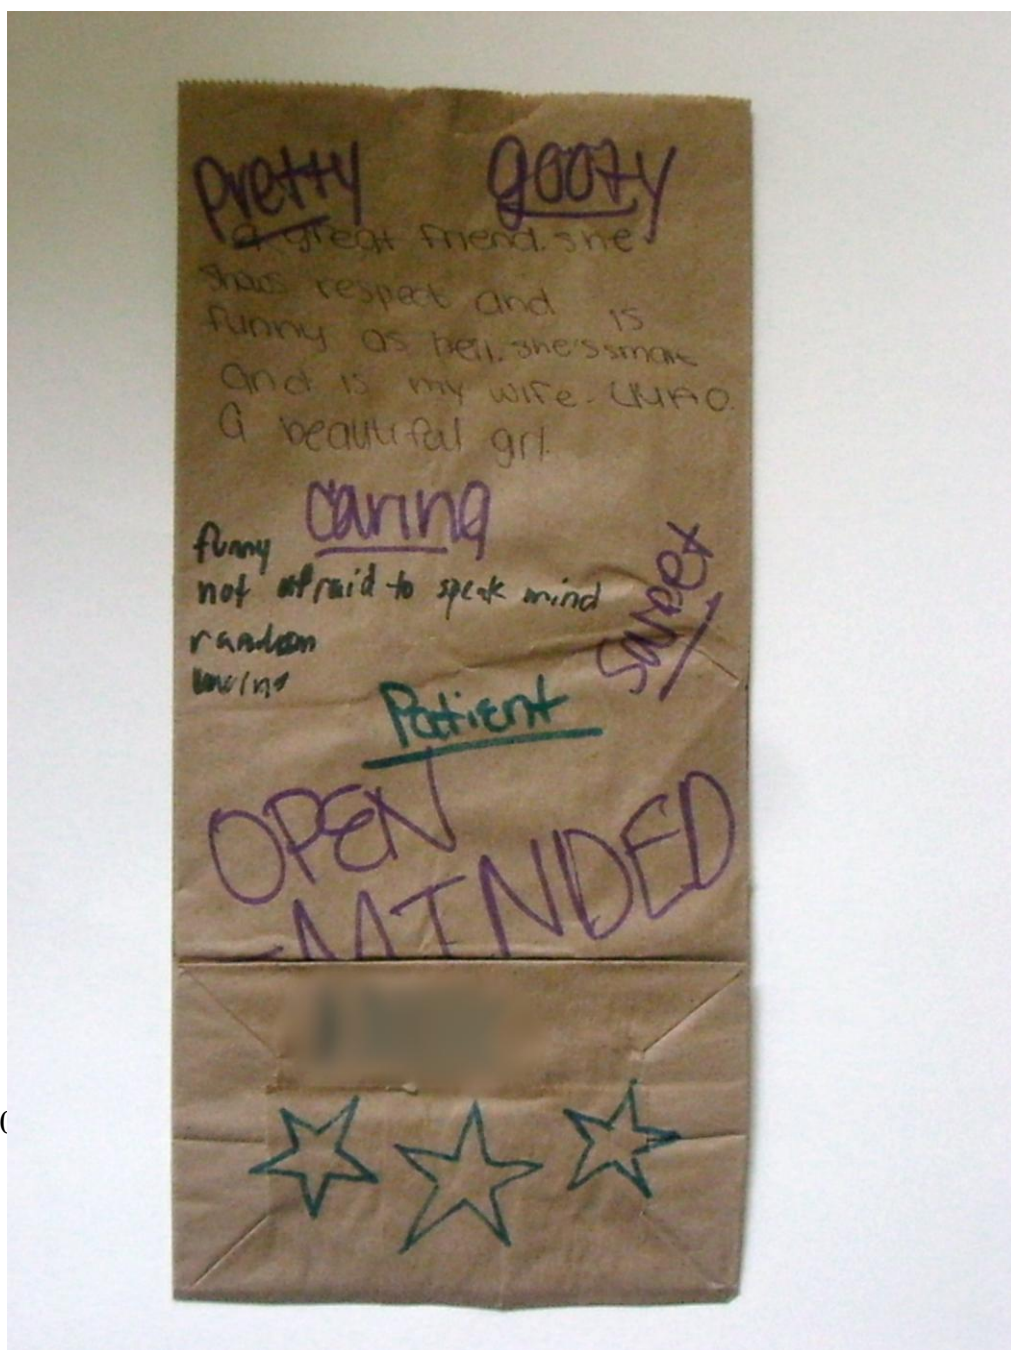 pretty goofy
a great friend. she
shows respect and is
funny as hell. she's smart
and is my wife.
A beautiful girl.
caring
funny
not afraid to speak mind
random
sweet
Patient
OPEN
-MINDED